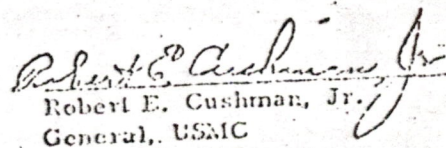 Robert E. Cushman, Jr
Robert E. Cushman, Jr.
General, USMC